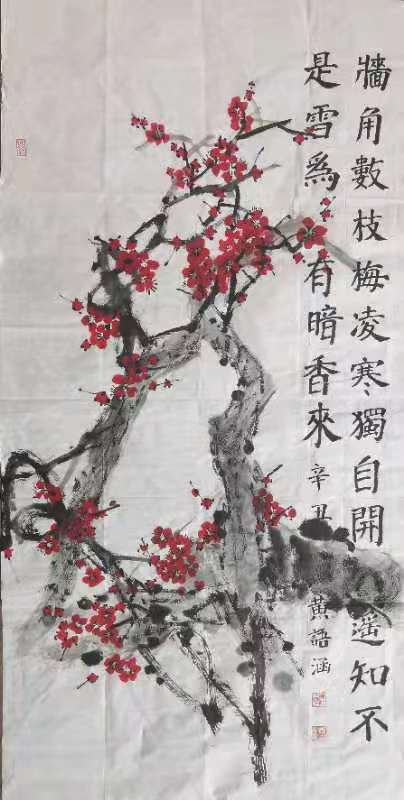 牆角數枝梅凌寒獨自開遙知不
是雪為有暗香來
辛丑 黄語涵